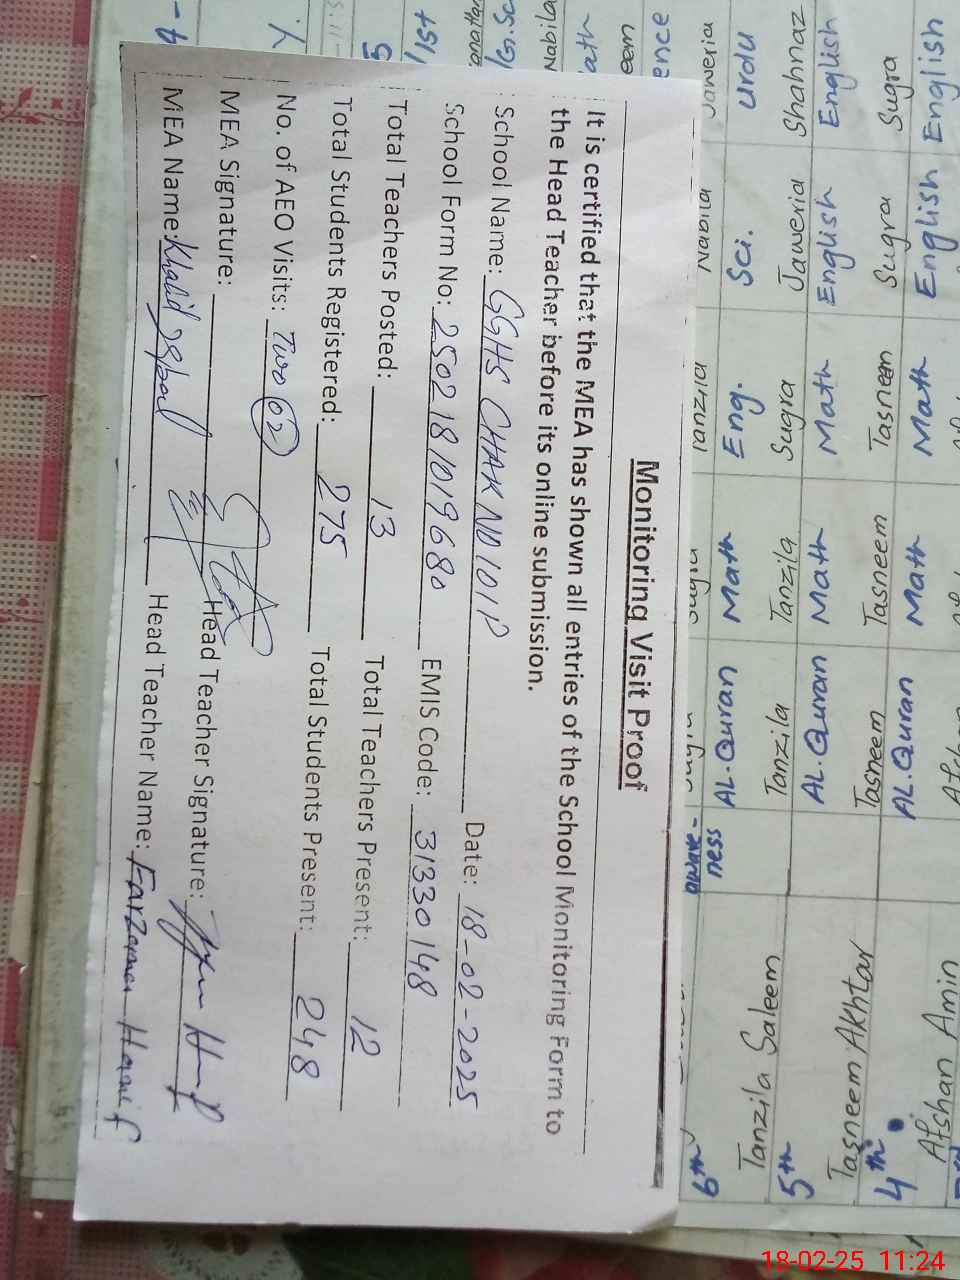 Monitoring Visit Proof
It is certified that the MEA has shown all entries of the School Monitoring Form to
the Head Teacher before its online submission.
School Name: GGHS CHAK NO 101P Date: 18-02-2025
School Form No: 2502181019680 EMIS Code: 31330148
Total Teachers Posted: 13 Total Teachers Present: 12
Total Students Registered: 275 Total Students Present: 248
No. of AEO Visits: Two 02
MEA Signature: Head Teacher Signature:
MEA Name: Khalid Iqbal Head Teacher Name: Farzana Hanif
Urdu Sci. Eng. Math AL.Quran 6th
Shahnaz Jaweria Sugra Tanzila Tanzila Tanzila Saleem
English English Math Math AL.Quran 5th
Sugra Sugra Tasneem Tasneem Tasneem Tasneem Akhtar
English English Math Math AL.Quran 4th
Afshan Amin
18-02-25 11:24